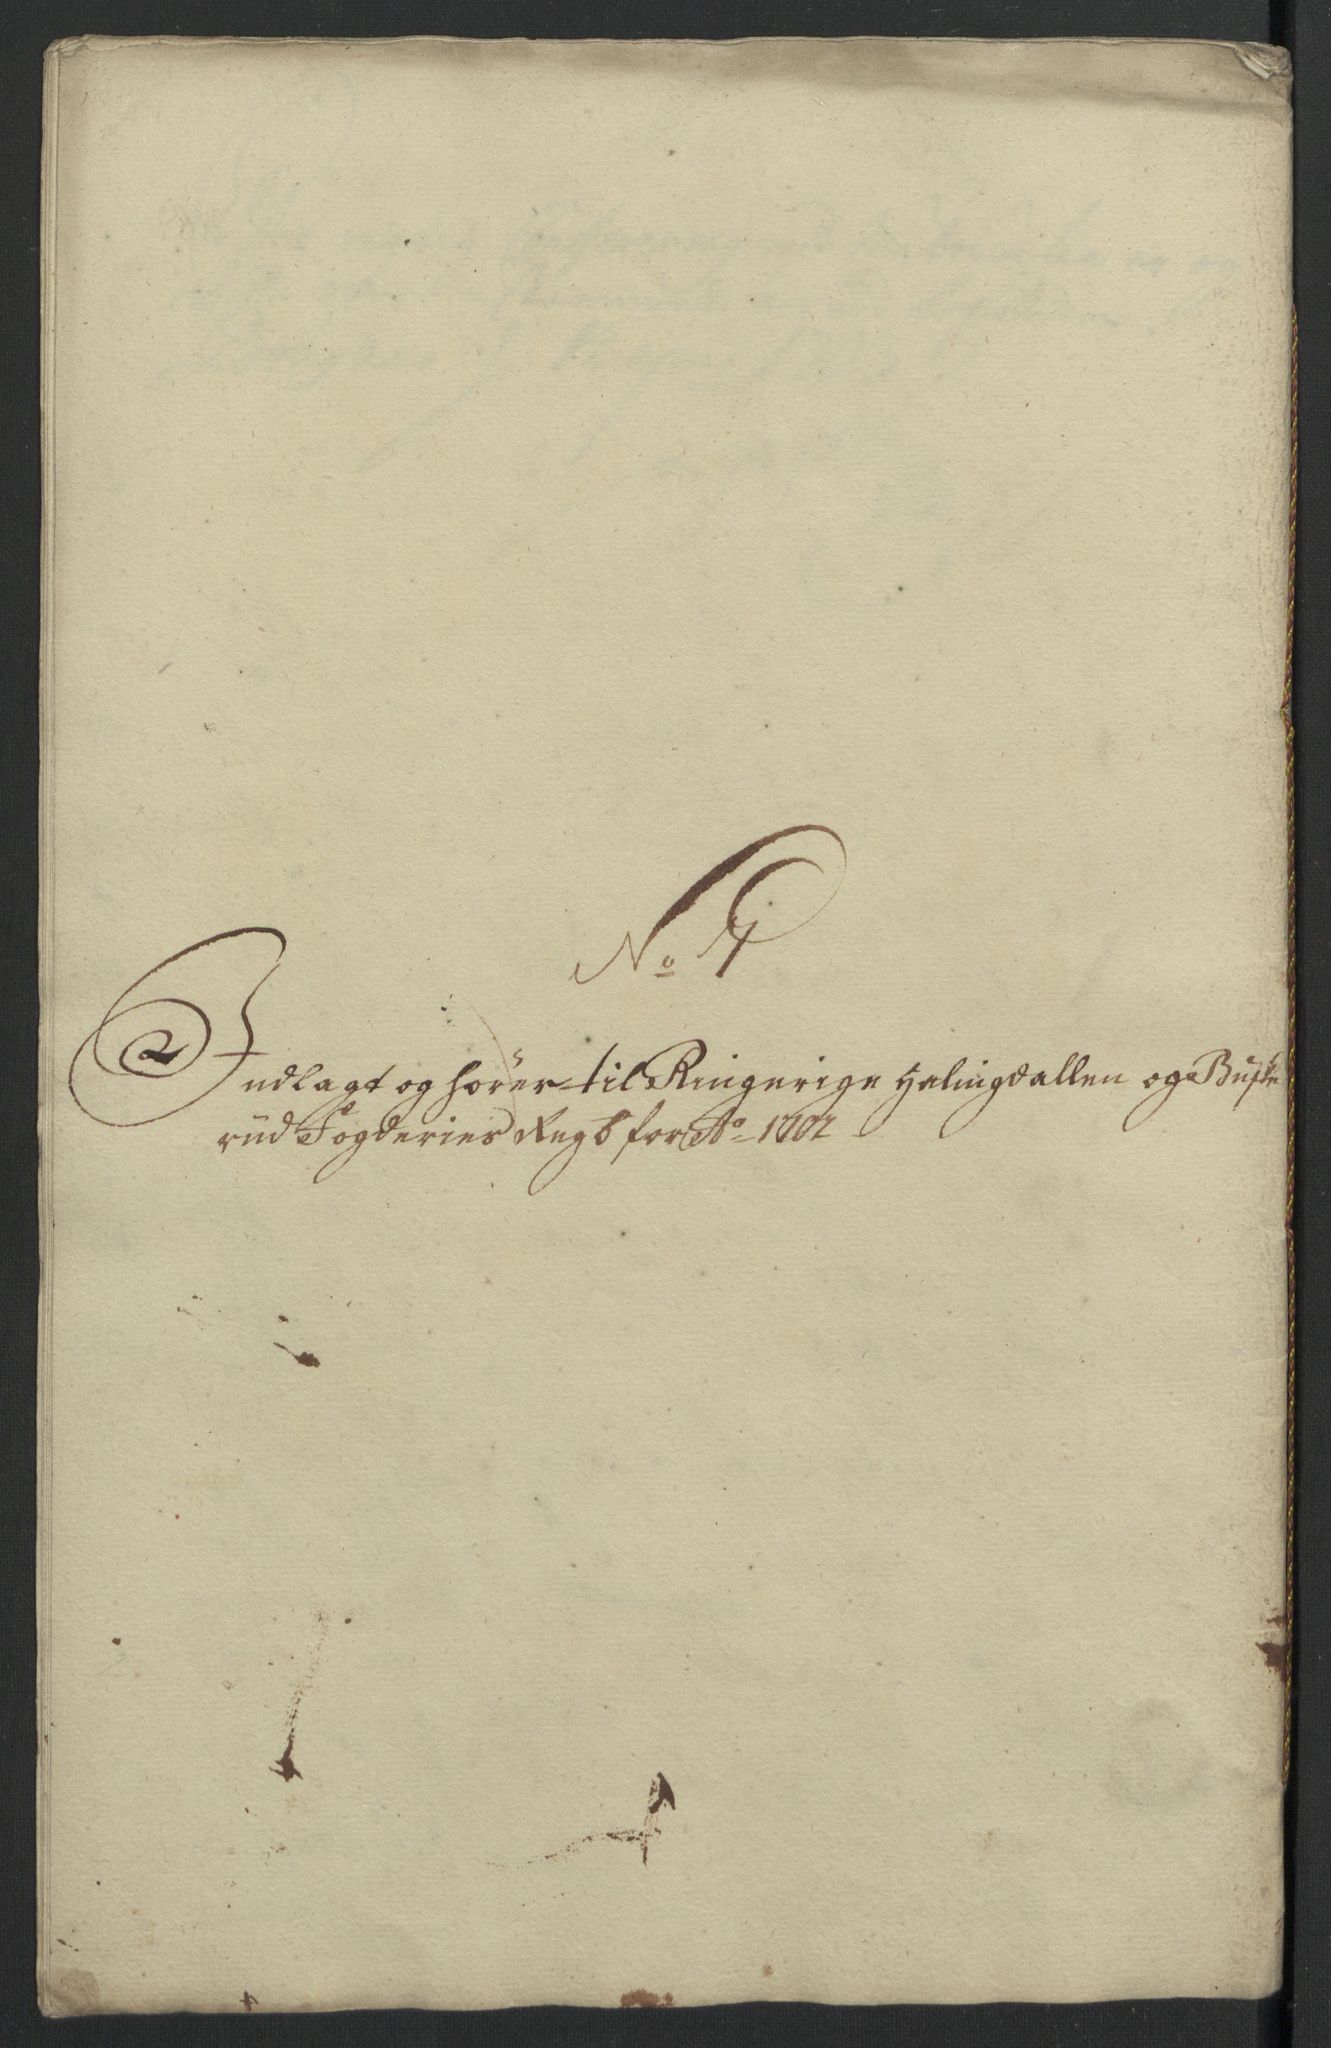 No 7
Indlagt og hörer til Ringerige Halingdallen og Buske
rüd Fogderies Regb for Ao 1702